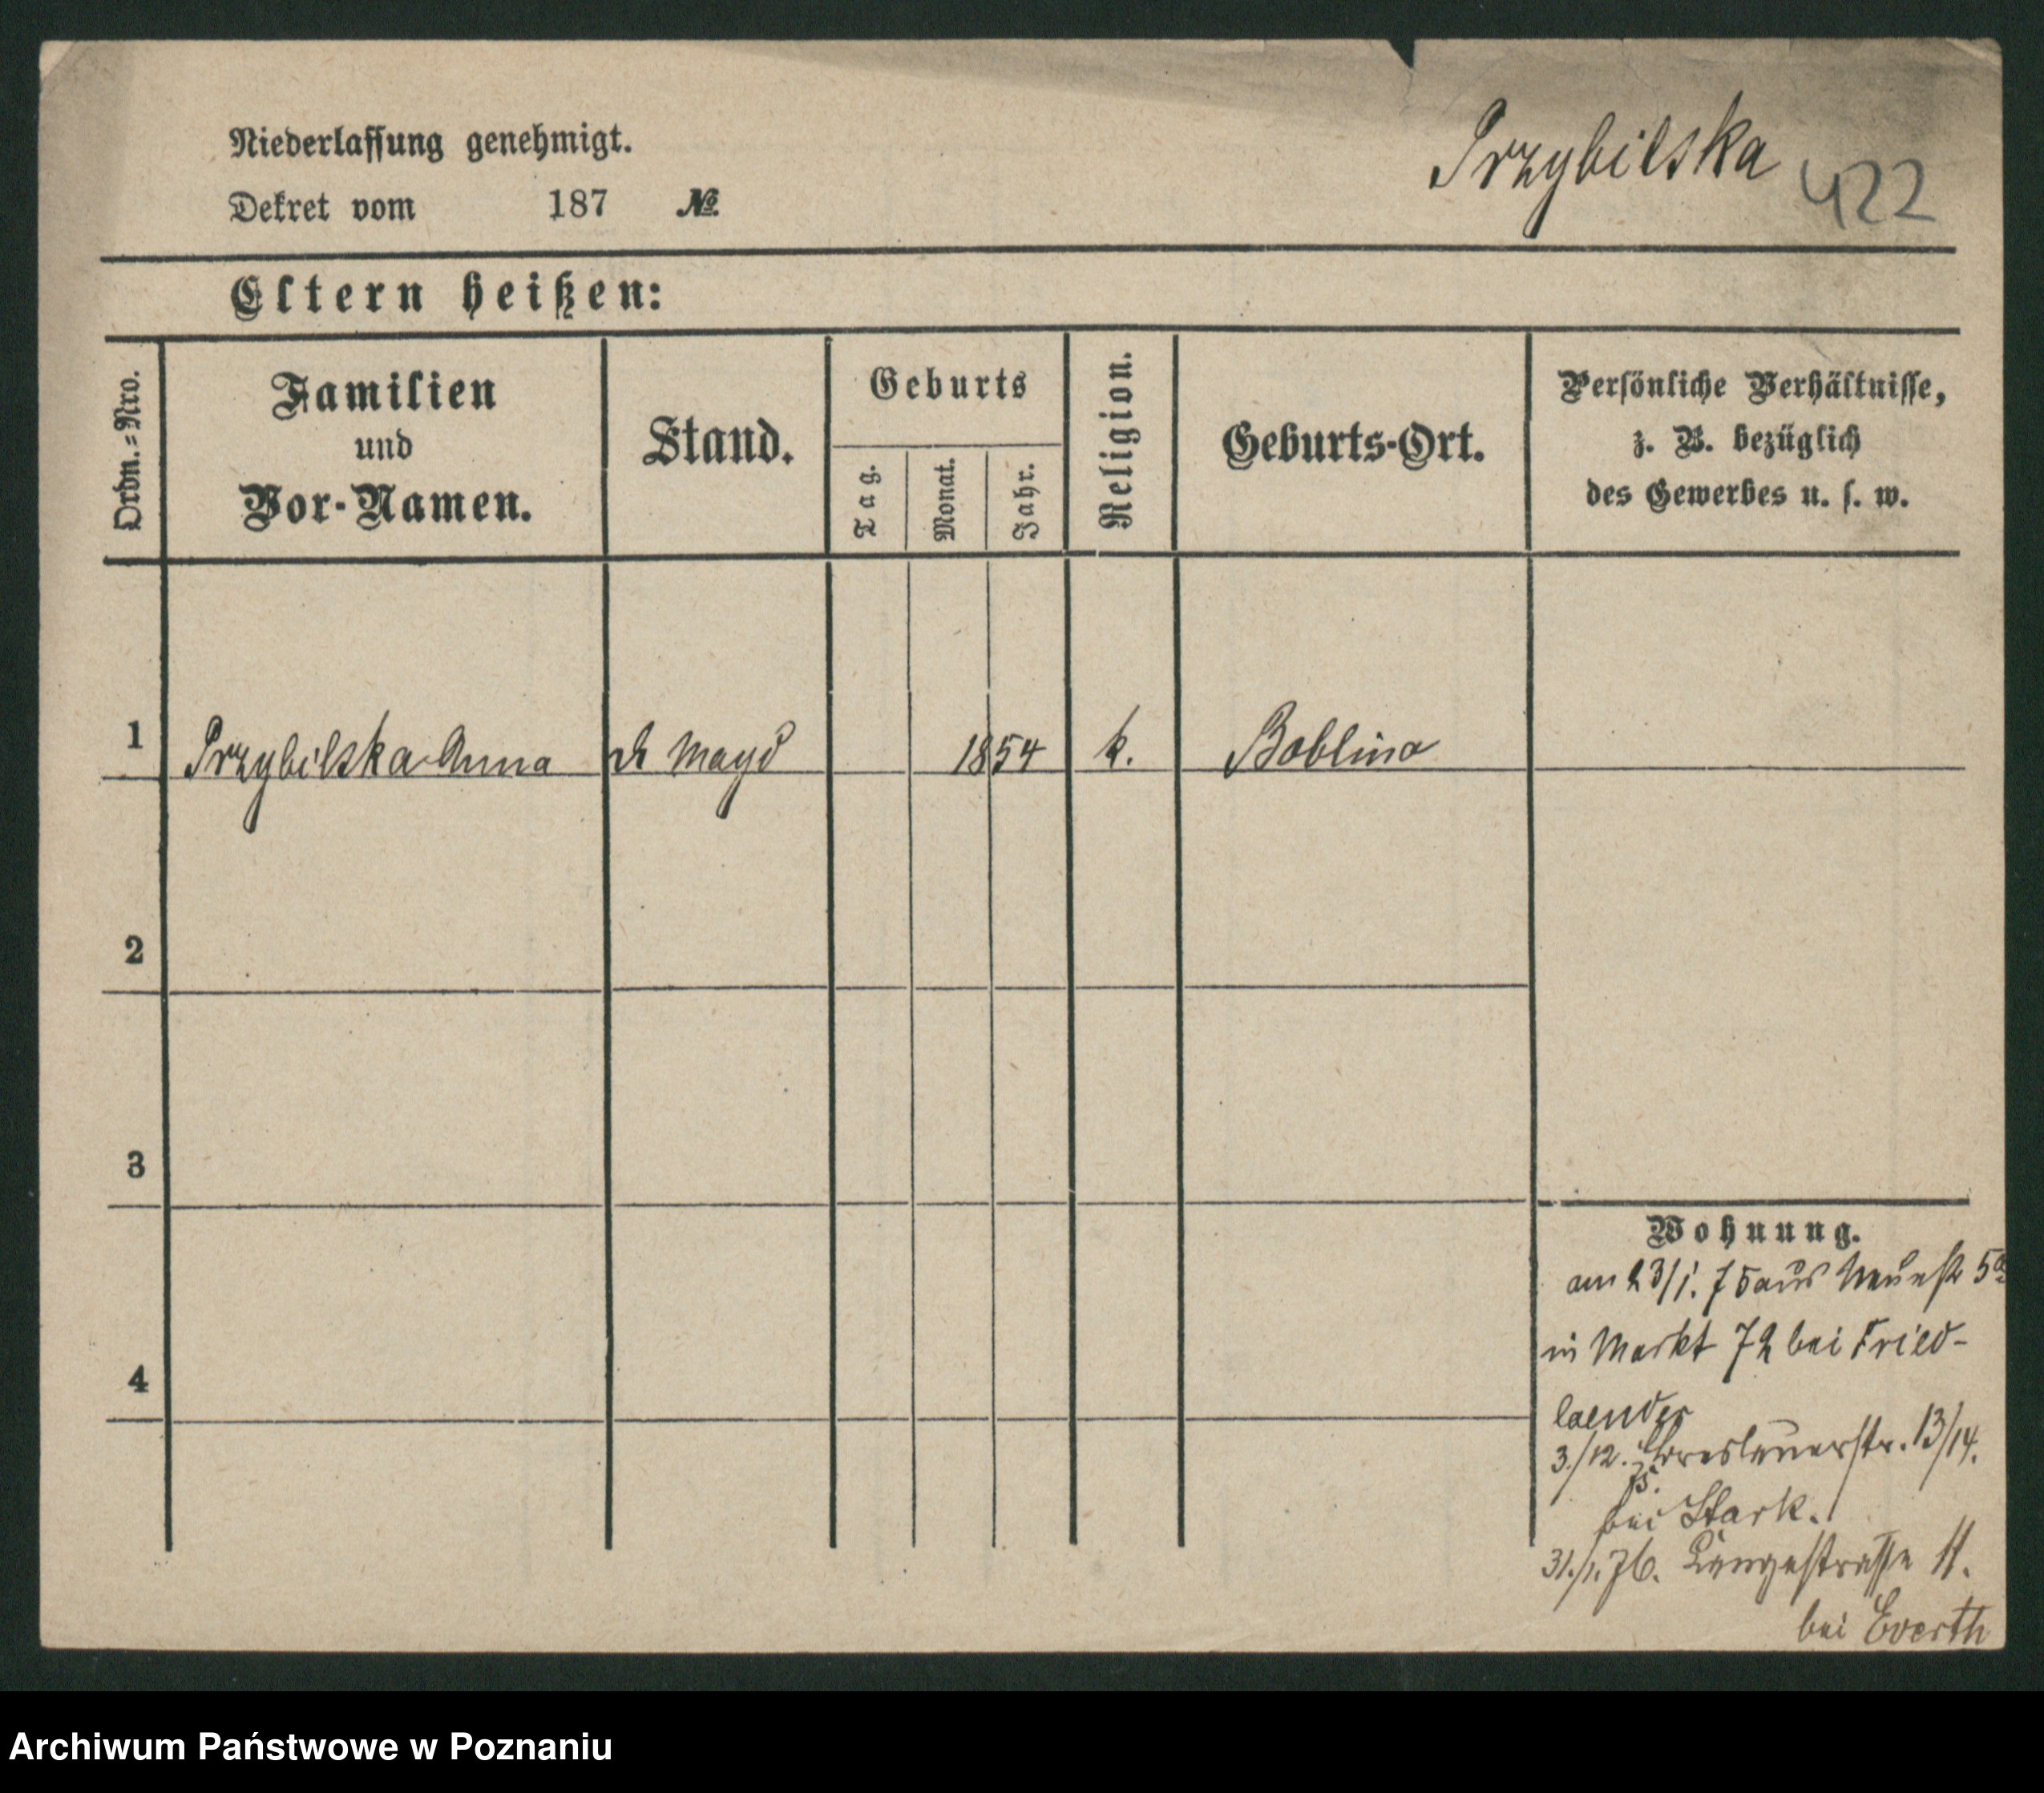 Niederlassung genehmigt.
Dekret vom 187 №
Przybilska 422
Eltern heißen:
Ordn.=Nro.
Familien
und
Vor-Namen.
Stand.
Geburts
Tag.
Monat.
Jahr.
Religion.
Geburts-Ort.
Persönliche Verhältnisse,
z. B. bezüglich
des Gewerbes u. s. w.
1 Przybilska Anna d Magd 1854 k. Boblino
2
3
4
Wohnung.
am 23/1. 75 aus Neuestr 5a
in Markt 72 bei Fried-
laender
3./12. 75. Breslauerstr. 13/14.
bei Stark.
31./1. 76. Langestrasse 11.
bei Everth
Archiwum Państwowe w Poznaniu